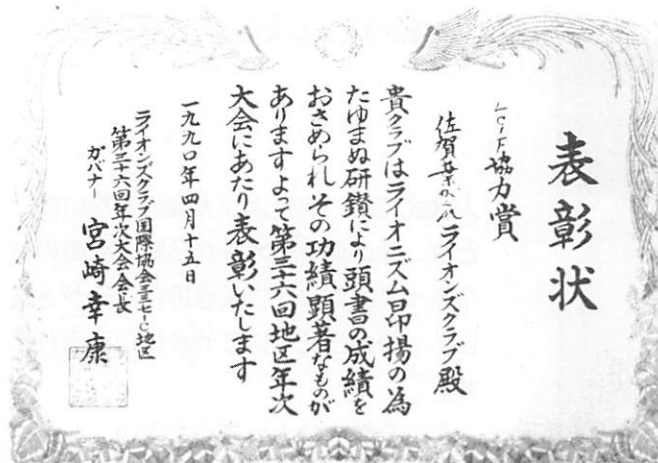 表彰状
LCIF協力賞
佐賀葉がくれライオンズクラブ殿
貴クラブはライオニズム昂揚の為
たゆまぬ研鑽により頭書の成績を
おさめられその功績顕著なものが
ありますよって第三十六回地区年次
大会にあたり表彰いたします
一九九〇年四月十五日
ライオンズクラブ国際協会三三七-C地区
第三十六回年次大会会長
ガバナー 宮崎幸康